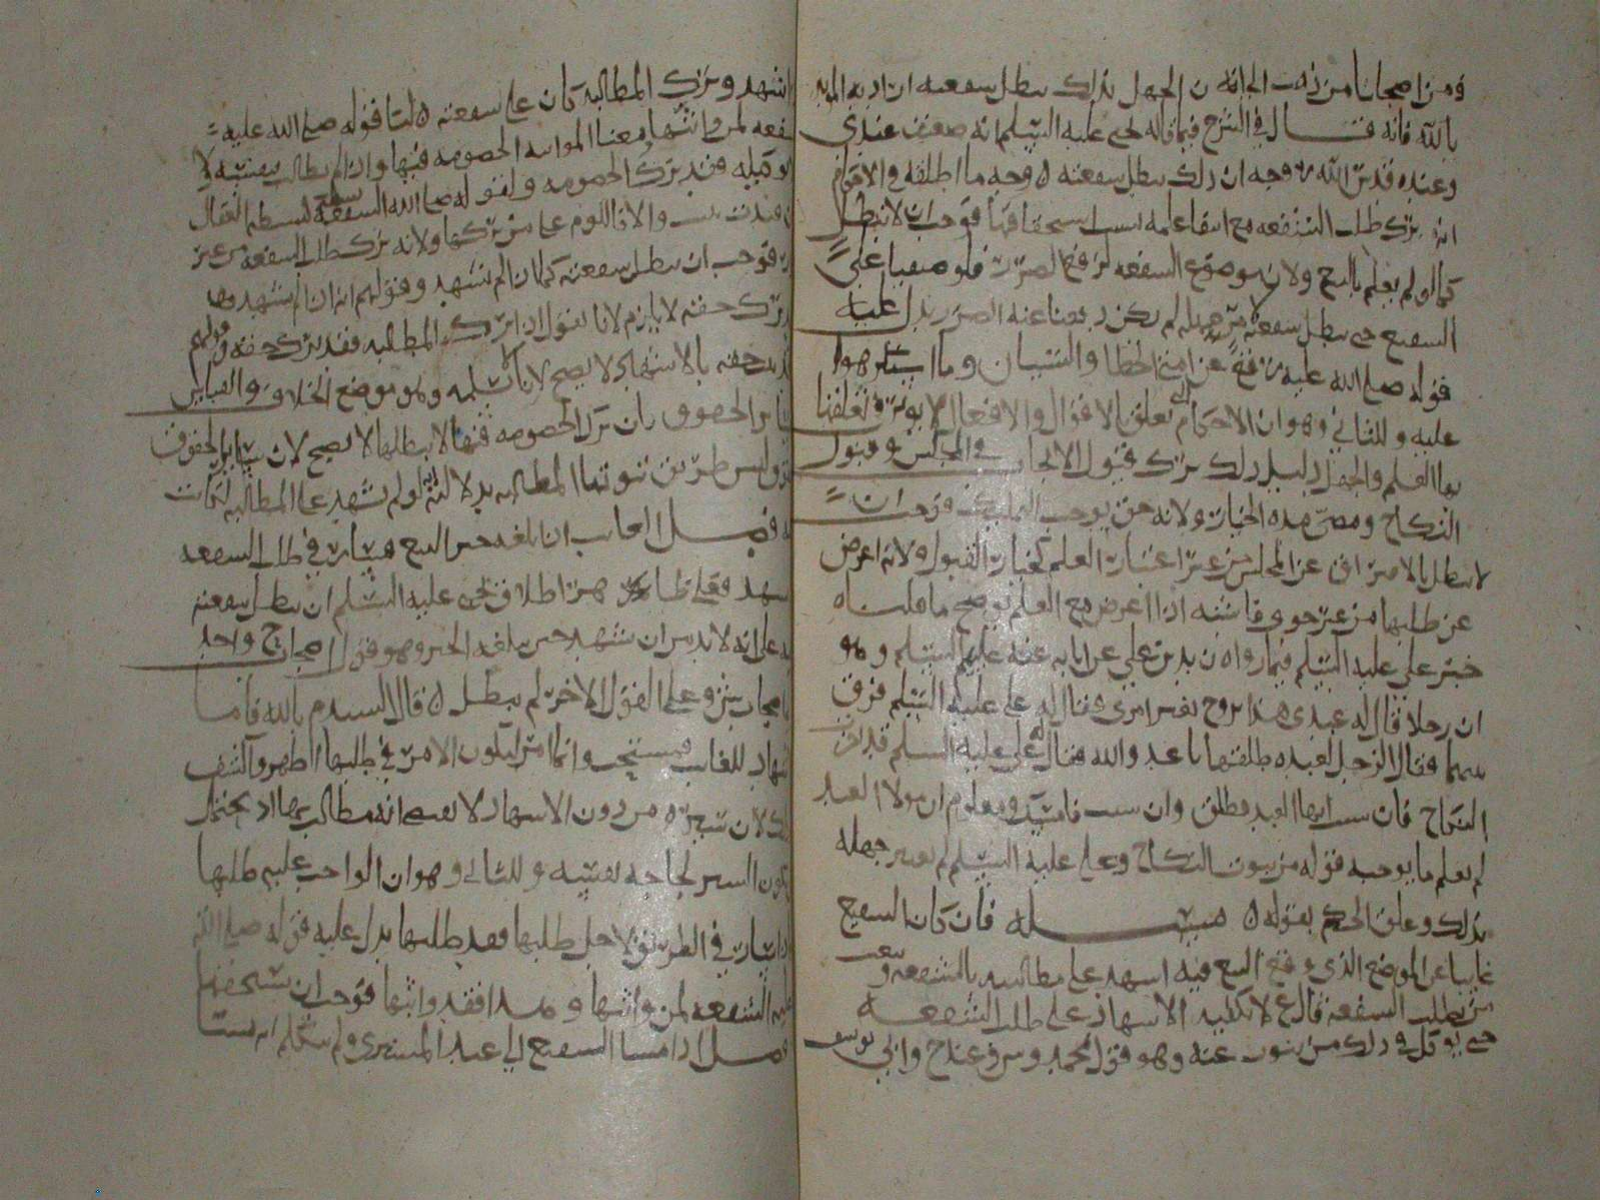 ومن اصحابنا من ذهب الى انه ن الجهل بذلك يبطل شفعته اراد به المويد
بالله فانه قال في الشرح فيما قاله يحيى عليه السلم انه ضعيف عندي
وعنده قدس الله روحه ان ذلك يبطل شفعته ه وجه ما اطلقه في الاحكام
انه ترك طلب الشفعه مع انتفا علمه بسبب استحقاقها فوجب ان لا تبطل
كما لو لم يعلم بالبيع ولان موضوع الشفعه لرفع الضرر فلو
الشفيع حتى يبطل شفعته من جهله لم يكن دفعنا عنه الضرر يدل عليه
قوله صلى الله عليه رفع عن امتي الخطا والنسيان وما استكرهوا
عليه وللثاني وهو ان الاحكام تعلق بالاقوال والافعال لا يوثر في تعلقها
بها العلم والجهل دليل ذلك ترك قبول الايجاب في المجلس وقبول
النكاح ومضى مده الخيار ولانه حق يوجب التمليك فوجب ان
لا يبطل بالافتراق عن المجلس من غير اعتبار العلم كخيار القبول ه لانه اعرض
عن طلبها من غير حق فاشبه اذا اعرض مع العلم يوضح ما قلناه
خبر علي عليه السلم فيما رواه زيد بن علي عن ابايه عنه عليهم السلم وهو
ان رجلا قال له عبدي هذا تزوج بغير امري فقال له علي عليه السلم فرق
بينهما فقال الرجل لعبده طلقها يا عدو الله فقال علي عليه السلم قد اجزت
النكاح فان شيت ايها العبد فطلق وان شيت فامسك ومعلوم ان مولا العبد
لم يعلم ما يوجبه قوله من ثبوت النكاح وعلي عليه السلم لم يعتبر جهله
بذلك وعلق الحكم بقوله ه مسئله فان كان الشفيع
غايبا عن الموضع الذي وقع البيع فيه اشهد على مطالبته بالشفعه وبعث
من يطلب الشفعه قال ع لا يكفيه الاشهاد على طلب الشفعه
حتى يوكل في ذلك من ينوب عنه وهو قول محمد وابي يوسف
اشهد وترك المطالبه كان على شفعته ه لنا قوله صلى الله عليه
الشفعه لمن واثبها معنا المواثبه الخصومه فيها وان لم يطالب بنفسه لا
بوكيله فقد ترك الخصومه ولقوله صلى الله الشفعه كنشطه العقال
ان قيدت ثبتت والا فاللوم على من تركها ولانه ترك طلب الشفعه من غير
فوجب ان يبطل شفعته كما لو لم يشهد وقولهم انه ان لم يشهد فقد
ترك حقه لا يلزم لانا نقول اذا ترك المطالبه فقد ترك حقه وقولهم
حقه بالاشهاد لا يصح لانا لا نسلمه وهو موضع الخلاف والقياس
ساير الحقوق بان ترك الخصومه فيها لا يبطلها لا يصح لان ساير الحقوق
ليس طريق ثبوتها المطالبه بدلاله انه لو لم يشهد على المطالبه لكانت
فصل الغايب ان بلغه خبر البيع فسار في طلب الشفعه
يشهد فعلى ظاهر اطلاق يحيى عليه السلم ان يبطل شفعته
على انه لابد من ان يشهد حين بلغه الخبر وهو قول اصحاب ح واحد
وعلى القول الاخر لم يبطل ه قال السيد م بالله فاما
الاشهاد للغايب فمستحب وانما امر ليكون الامر في طلبها اظهر واكشف
ذلك لان سيره من دون الاشهاد لا يقتضي انه مطالب بها اذ يحتمل
يكون السير لحاجه نفسه وللثاني وهو ان الواجب عليه طلبها
اذا سار في الطريق لاجل طلبها فقد طلبها يدل عليه قوله صلى الله
عليه الشفعه لمن واثبها وهذا فقد واثبها فوجب ان يستحقها
فصل اذا مشا الشفيع الى عند المشتري ولم يتكلم